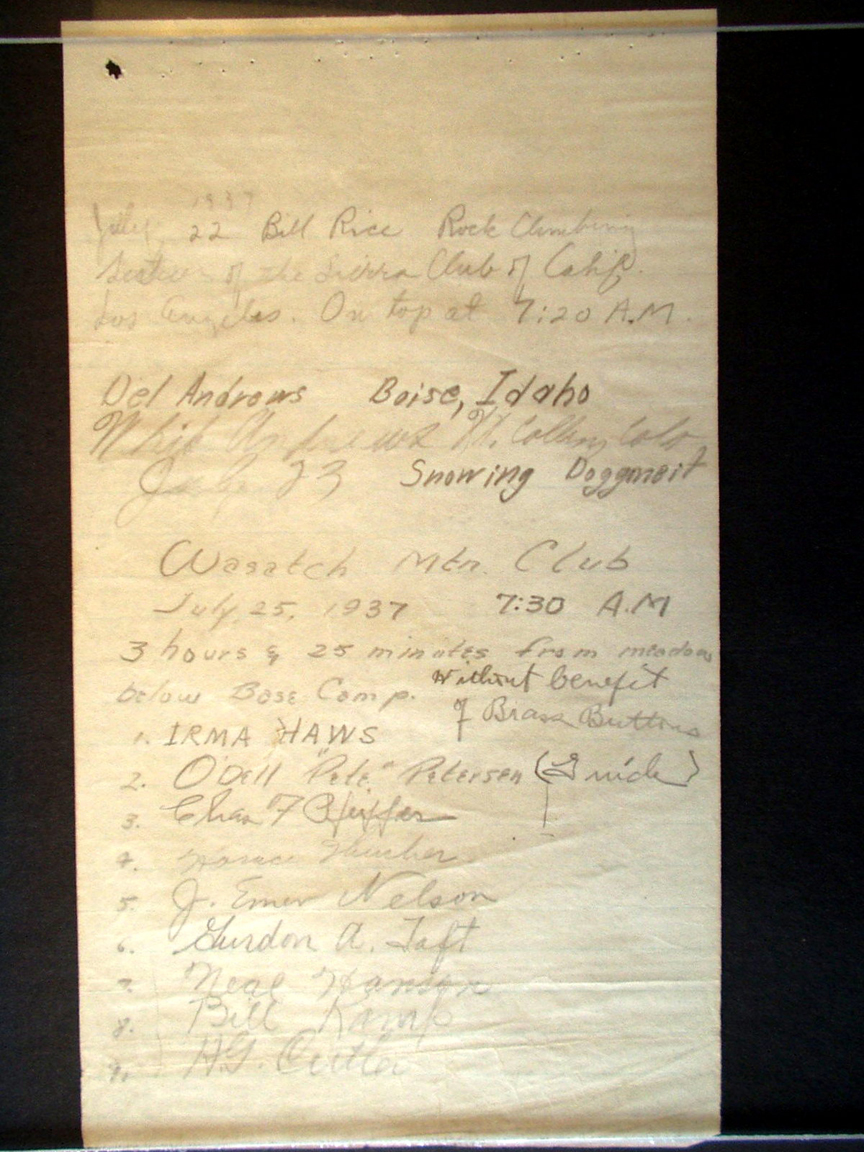 1937
July 22 Bill Rice Rock Climbing
Section of the Sierra Club of Calif.
Los Angeles. On top at 7:20 A.M.
Del Andrews Boise, Idaho
Whit Andrews Ft. Collins Colo
July 23 Snowing Doggoneit
Wasatch Mtn. Club
July, 25, 1937 7:30 A.M
3 hours & 25 minutes from meadow
below Base Camp. Without benefit
of Brass Buttons
1. IRMA HAWS
2. O'Dell "Pete" Petersen (Guide)
3. Chas F Pfeiffer
4. Horace
5. J. Emer Nelson
6. Gurdon A. Taft
7. Neal Hanson
8. Bill Kamp
9. H.G. Cutler